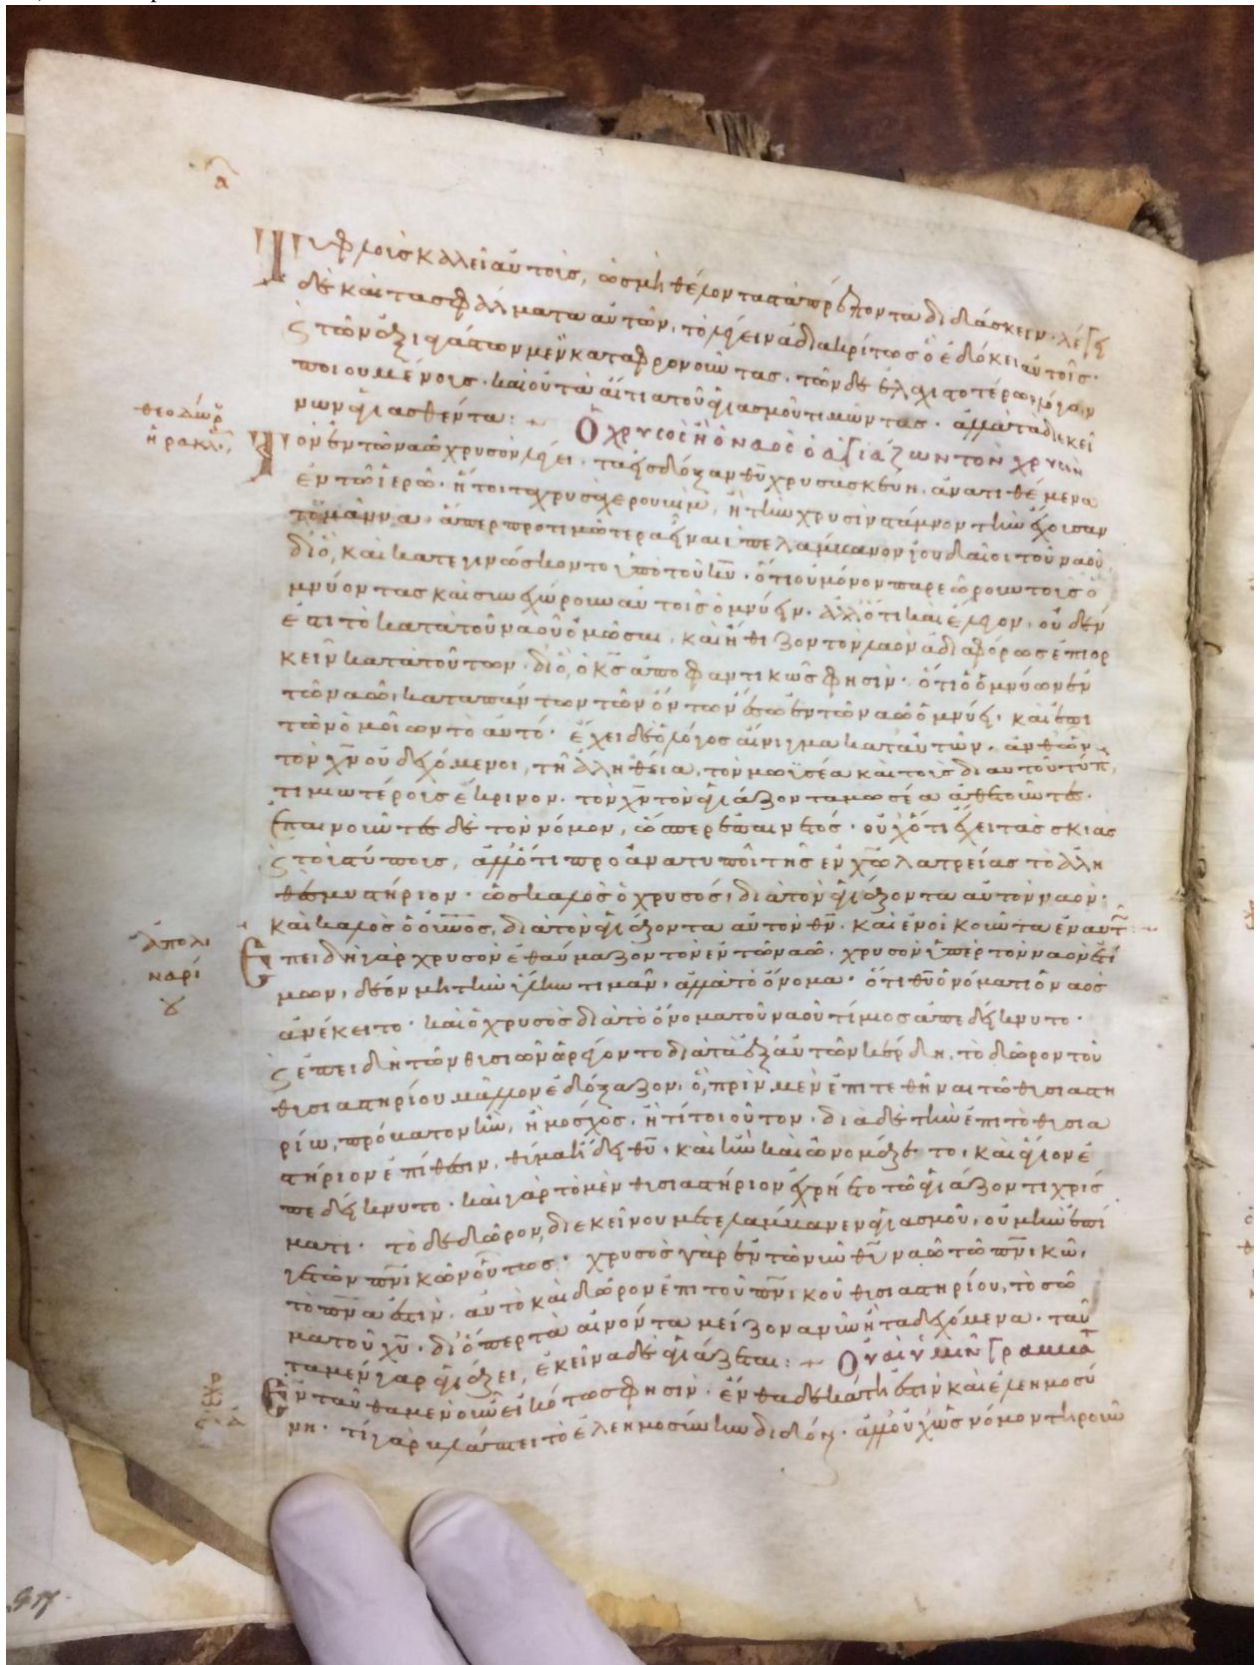 α
Τυφλοὺς καλεῖ αὐτοὺς, ὡς μὴ θέλοντας τὰ πρέποντα διδάσκειν· λέγει
δὲ καὶ τὰ σφάλματα αὐτῶν, τὸ λέγειν ἀδιακρίτως ὃ ἐδόκει αὐτοῖς·
τῶν μὲν καταφρονοῦντας· τῶν δὲ λόγον
ποιουμένους· καὶ οὐ τὰ αἴτια τοῦ ἁγιασμοῦ τιμῶντας· ἀλλὰ τὰ δι ἐκεί
νων ἁγιασθέντα: Ὁ χρυσὸς ἢ ὁ ναὸς ὁ ἁγιάζων τὸν χρυσόν
θεοδώρ
ἡρακλ
Τὸν ἐν τῶ ναῶ χρυσὸν λέγει· τὰ εἰς δόξαν θῦ χρυσᾶ σκεύη, ἀνατιθέμενα
ἐν τῶ ἱερῶ· ἤτοι τὰ χρυσᾶ χερουβιμ, ἢ τὴν χρυσὴν στάμνον τὴν ἔχουσαν
τὸ μάννα· ἅπερ προτιμώτερα εἶναι ὑπελάμβανον ἰουδαῖοι τοῦ ναοῦ,
διὸ, καὶ κατεγινώσκοντο ὑπὸ τοῦ κῦ· ὅτι οὐ μόνον παρεώρουν τοὺς ὀ
μνύοντας καὶ συνεχώρουν αὐτοῖς ὀμνύειν· ἀλλ ὅτι καὶ ἔλεγον, οὐδὲν
ἐπὶ τὸ κατὰ τοῦ ναοῦ ὀμῶσαι, καὶ ἤθιζον τὸν λαὸν ἀδιαφόρως ἐπιορ
κεῖν κατὰ τούτων· διὸ, ὁ κς ἀποφαντικῶς φησὶν· ὅτι ὁ ὀμνύων ἐν
τῶ ναῶ, κατὰ πάντων τῶν ὄντων ἔσω ἐν τῶ ναῶ ὀμνύει· καὶ ἐπὶ
τῶν ὁμοίων τὸ αὐτό· ἔχει δὲ ὁ λόγος αἴνιγμα κατ αὐτῶν· ἀνθ ὧν
τὸν χν οὐ δεχόμενοι, τῆ ἀληθεία, τὸν μωϋσέα καὶ τοὺς δι αὐτοῦ τύπ
τιμιωτέρους ἔκρινον· τὸν χν τὸν ἁγιάζοντα μωσέα ἀθετοῦντες·
ἐπαινοῦντες δὲ τὸν νόμον, ὥσπερ ἐπαινετός· οὐχ ὅτι ἔχει τὰς σκιὰς
τοὺς τύπους, ἀλλ ὅτι προανατυποῖ τῆς ἐν χω λατρείας τὸ ἀλη
θὲς μυστήριον· ὡς καλὸς ὁ χρυσὸς, διὰ τὸν ἁγιάζοντα αὐτὸν ναόν·
καὶ καλὸς ὁ οὐνος, διὰ τὸν ἁγιάζοντα αὐτὸν θν· καὶ ἐνοικοῦντα ἐν αὐτ
ἀπολι
ναρί
ου
Ἐπειδὴ γὰρ χρυσὸν ἐθαύμαζον τὸν ἐν τῶ ναῶ, χρυσὸν ὑπὲρ τὸν ναὸν ἐτί
μων, δέον μὴ τὴν ὕλην τιμᾶν, ἀλλὰ τὸ ὄνομα· ὅτι θῦ ὀνόματι ὁ ναὸς
ἀνέκειτο· καὶ ὁ χρυσὸς διὰ τὸ ὄνομα τοῦ ναοῦ τίμιος ἀπεδείκνυτο·
ἐπειδὴ τῶν θυσιῶν ἀντείχοντο διὰ τὰ ἐξ αὐτῶν κέρδη, τὸ δῶρον τοῦ
θυσιαστηρίου μᾶλλον ἐδόξαζον, ὃ, πρὶν μὲν ἐπιτεθῆναι τῶ θυσιαστη
ρίω, πρόβατον ἦν, ἢ μόσχος, ἤ τι τοιοῦτον· διὰ δὲ τὴν ἐπὶ τὸ θυσια
στήριον ἐπίθεσιν, θῦμα ἤδη θῦ, καὶ ἦν καὶ ὠνομάζετο, καὶ ἅγιον ἐ
πεδείκνυτο· καὶ γὰρ τὸ μὲν θυσιαστήριον ἐχρίετο τῶ ἁγιάζοντι χρίσ
ματι· τὸ δὲ δῶρον, δι ἐκείνου μετελάμβανεν ἁγιασμοῦ, οὐ μὴν ἐπί
γε τῶν πνικῶν οὕτως· χρυσὸς γὰρ ἐν τῶ νῦν θῦ ναῶ τῶ πνικῶ,
τὸ πνα ἐστὶν· αὐτὸ καὶ δῶρον ἐπὶ τοῦ πνικοῦ θυσιαστηρίου, τὸ σῶ
μα τοῦ χῦ· διόπερ τὰ μείζονα νῦν ἢ τὰ δεχόμενα· ταῦ
τα μὲν γὰρ ἁγιάζει, ἐκεῖνα δὲ ἁγιάζεται: Οὐαὶ ὑμῖν γραμματ
Ἐνταῦθα μὲν οὖν εἰκότως φησὶν· ἔνθα δεκάτη ἐστὶν καὶ ἐλεημοσύ
νη· τί γὰρ βλάπτει τὸ ἐλεημοσύνην διδόναι· ἀλλ οὐχ ὡς νόμον τηροῦν